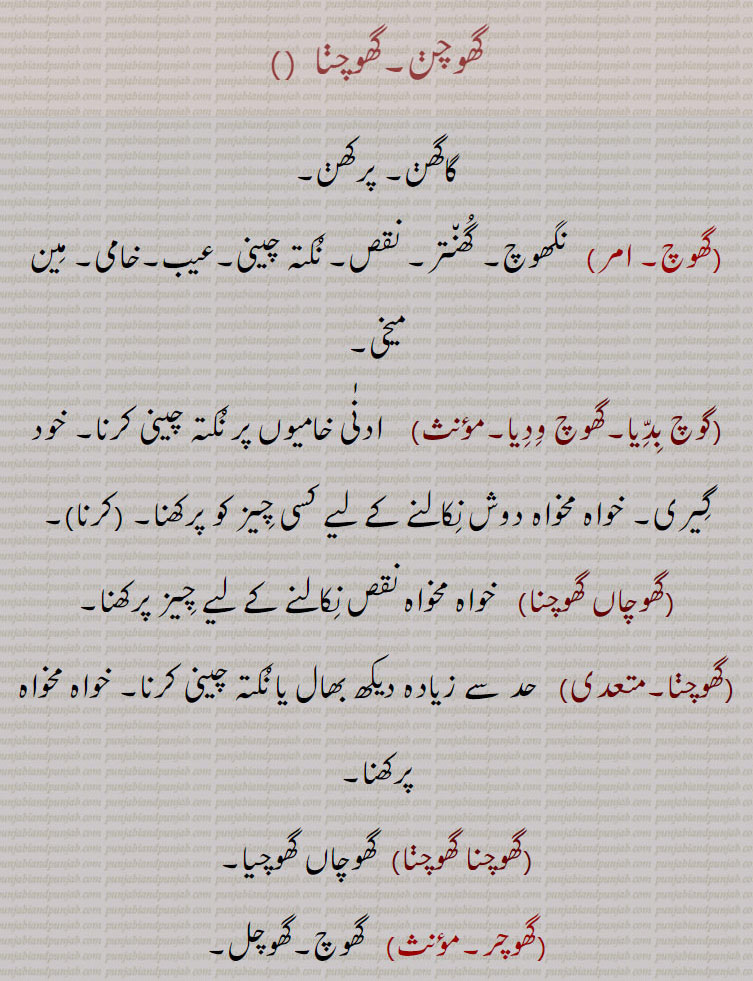 گھوچݨ۔گھوچݨا ()
گاگھݨ۔ پرکھݨ۔
(گھوچ۔ امر) نگھوچ۔ گُھنّتر۔ نقص۔ نُکتہ چینی۔عیب۔خامی۔ مِین
میخی۔
(گوچ بِدِّیا۔گھوچ وِدِیا۔مؤنث) ادنٰی خامیوں پر نُکتہ چینی کرنا۔ خود
گِیری۔ خواہ مخواہ دوش نِکالنے کے لیے کسی چِیز کو پرکھنا۔ (کرنا)۔
(گھوچاں گھوچنا) خواہ مخواہ نقص نِکالنے کے لیے چِیز پرکھنا۔
(گھوچݨا۔متعدی) حد سے زیادہ دیکھ بھال یا نُکتہ چینی کرنا۔ خواہ مخواہ
پرکھنا۔
(گھوچنا گھوچݨا) گھوچاں گھوچیا۔
(گھوچر۔مؤنث) گھوچ۔گھوچل۔